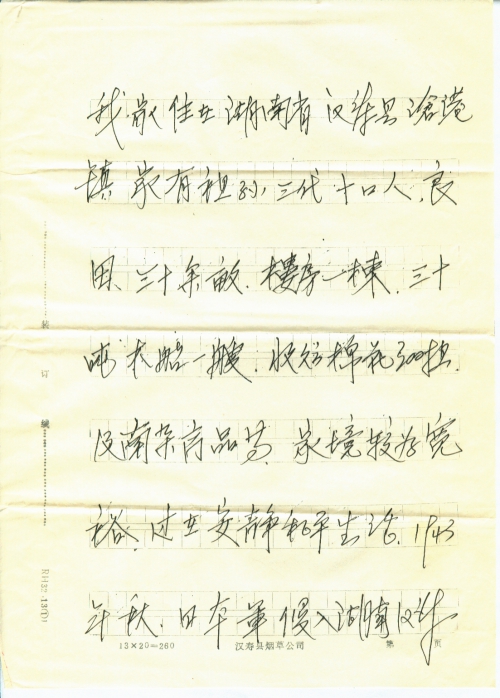 我家住在湖南省汉寿县沧港
镇家有祖孙,三代十口人,良
田、三十余亩、樓房一棟、三十
吨木船一艘、收活棉花300担
及南杂商品等,家境較為宽
裕,过在安静和平生活,1943
年秋,日本軍侵入湖南汉寿
装
订
线
RH32-13(1)
13×20=260
汉寿县烟草公司
第 页